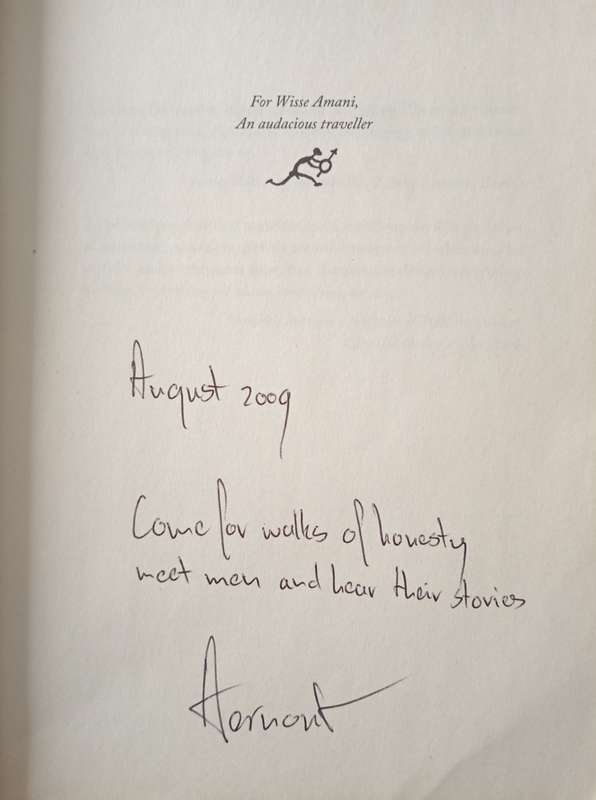 For Wisse Amani,
An audacious traveller
August 2009
Come for walks of honesty
meet men and hear their stories
Aernout